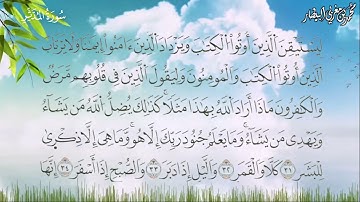 سورة المدثر
لِيَسْتَيْقِنَ الَّذِينَ أُوتُوا الْكِتَٰبَ وَيَزْدَادَ الَّذِينَ ءَامَنُوا إِيمَٰنًا وَلَا يَرْتَابَ
الَّذِينَ أُوتُوا الْكِتَٰبَ وَالْمُؤْمِنُونَ وَلِيَقُولَ الَّذِينَ فِي قُلُوبِهِم مَّرَضٌ
وَالْكَٰفِرُونَ مَاذَا أَرَادَ اللَّهُ بِهَٰذَا مَثَلًا كَذَٰلِكَ يُضِلُّ اللَّهُ مَن يَشَاءُ
وَيَهْدِي مَن يَشَاءُ وَمَا يَعْلَمُ جُنُودَ رَبِّكَ إِلَّا هُوَ وَمَا هِيَ إِلَّا ذِكْرَىٰ
لِلْبَشَرِ ٣١ كَلَّا وَالْقَمَرِ ٣٢ وَالَّيْلِ إِذْ أَدْبَرَ ٣٣ وَالصُّبْحِ إِذَا أَسْفَرَ ٣٤ إِنَّهَا